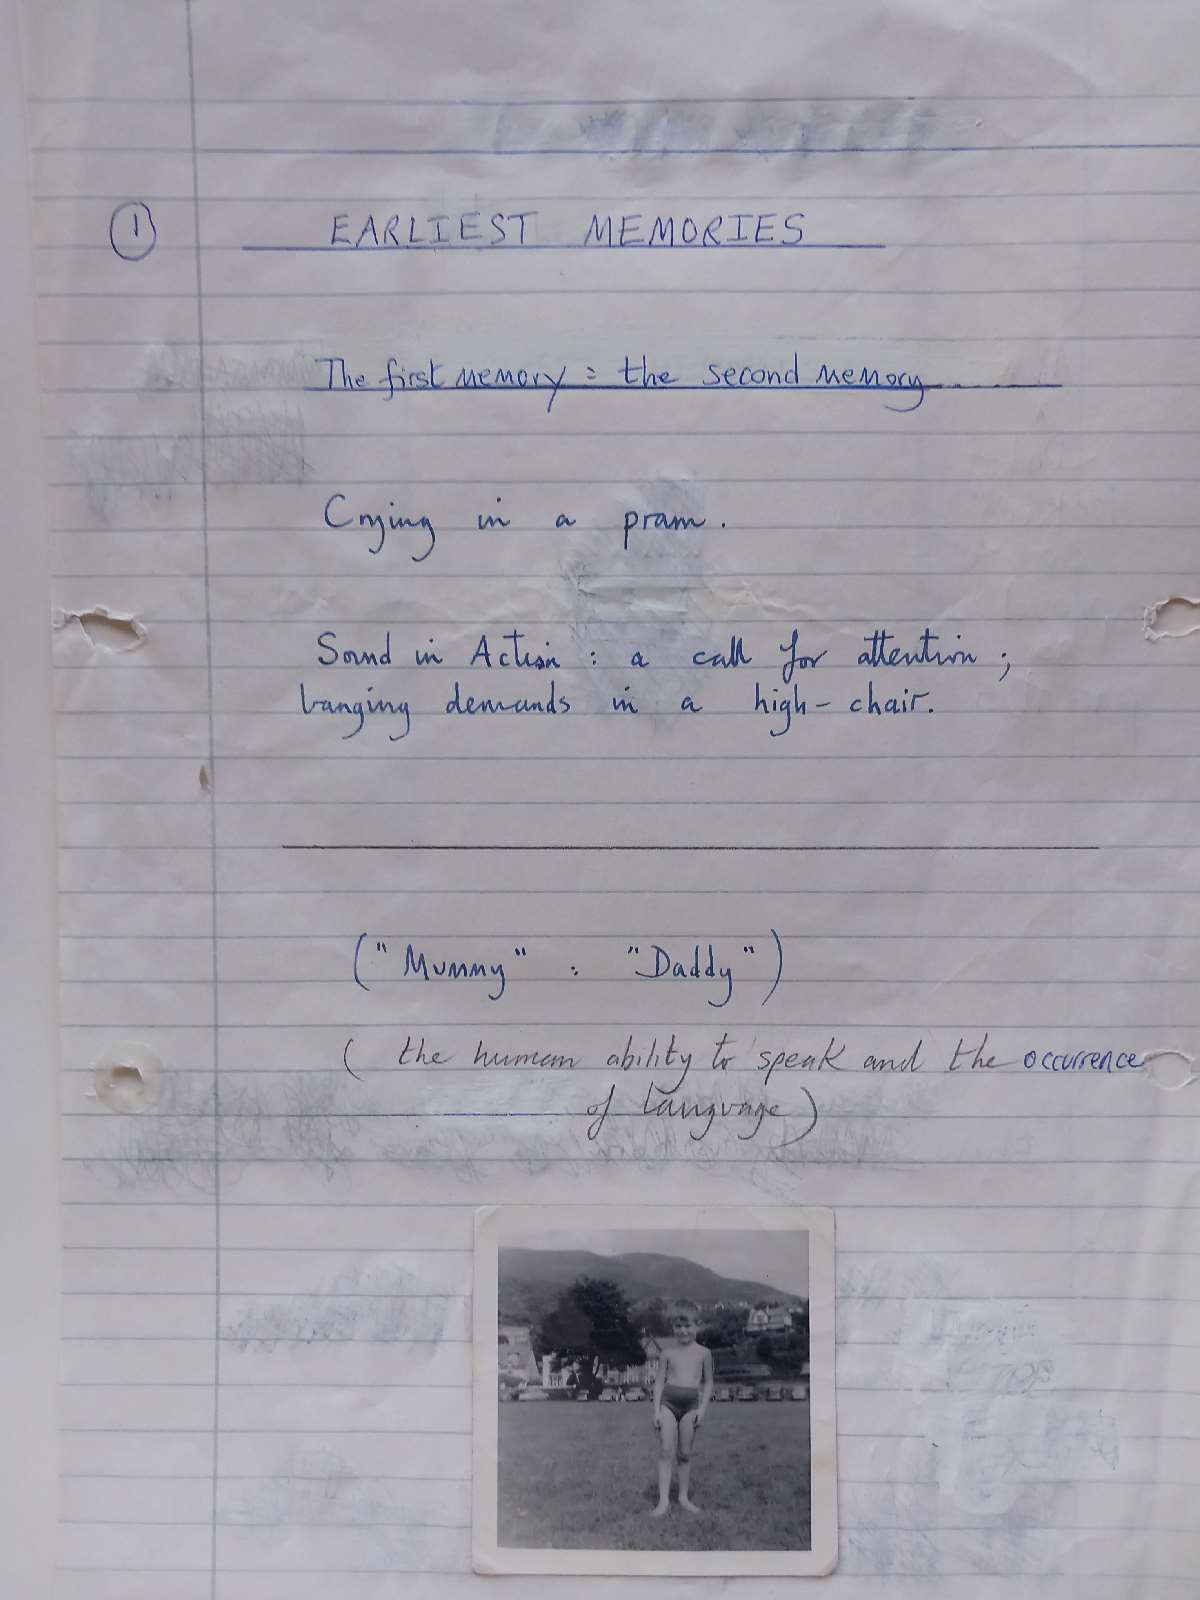 1 EARLIEST MEMORIES
The first memory : the second memory
Crying in a pram.
Sound in Action : a call for attention ;
banging demands in a high-chair.
("Mummy" : "Daddy")
( the human ability to speak and the occurrence
of language)